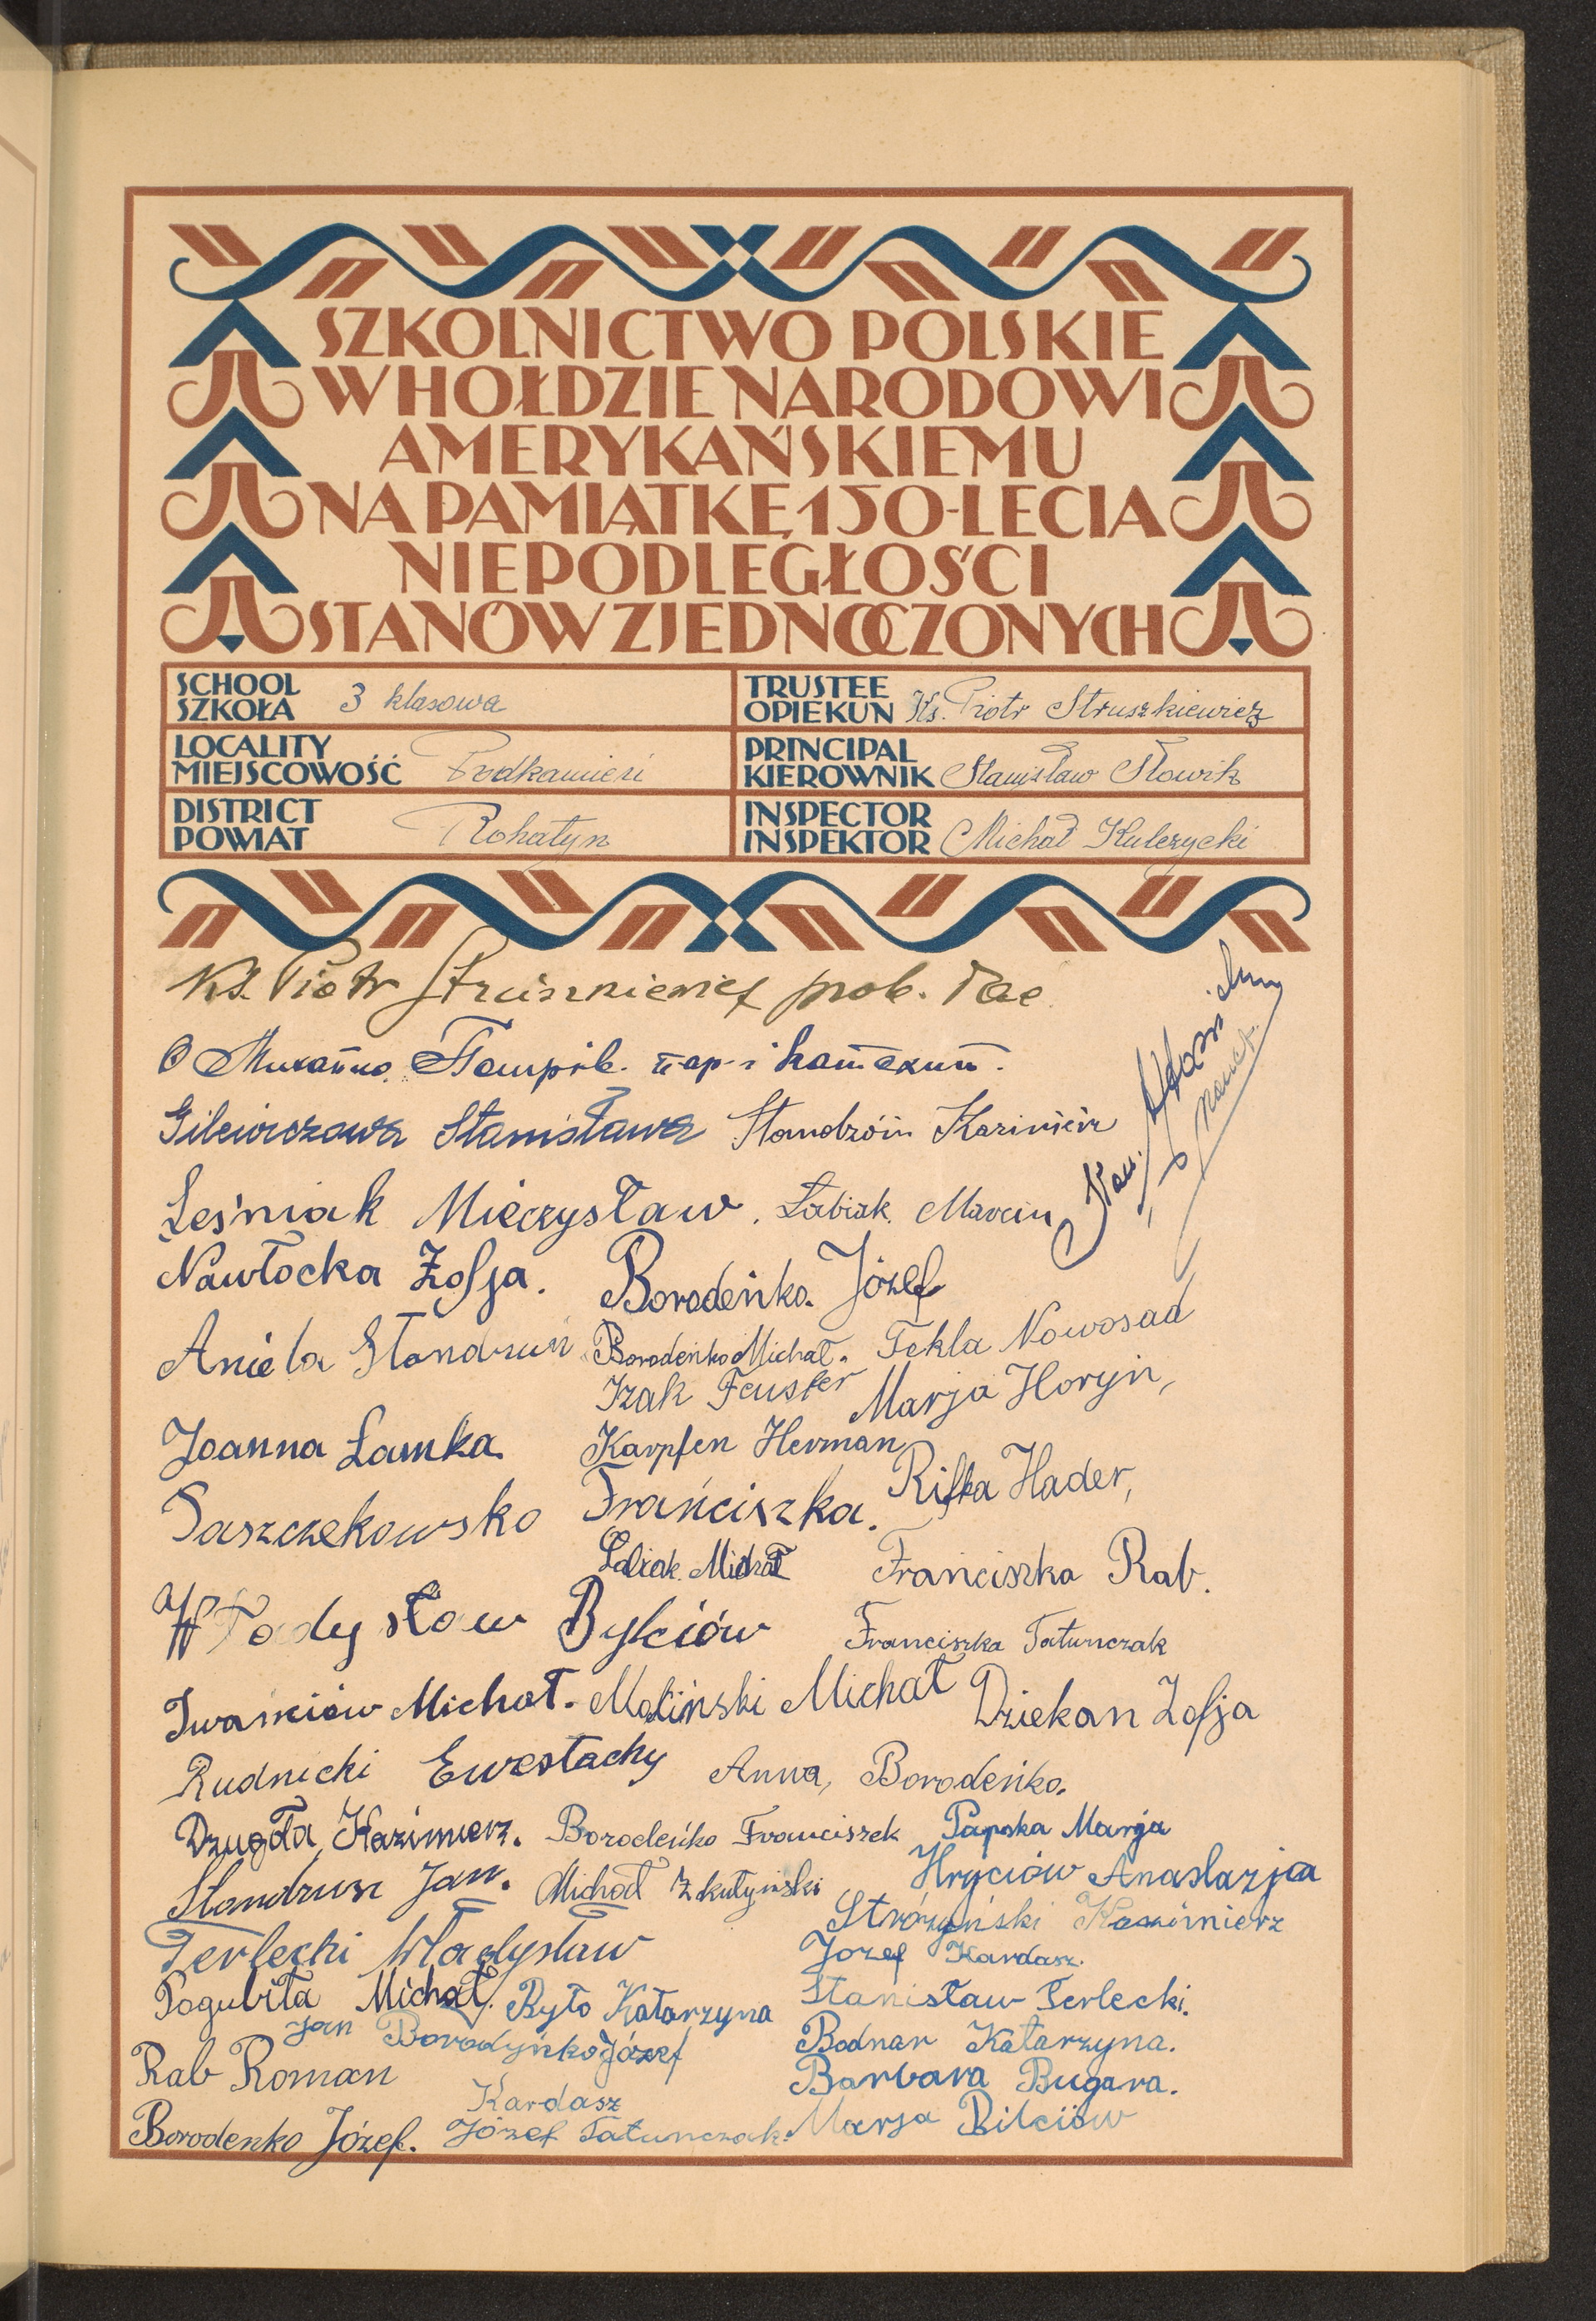 SZKOLNICTWO POLSKIE
W HOŁDZIE NARODOWI
AMERYKAŃSKIEMU
NA PAMIĄTKĘ 150-LECIA
NIEPODLEGŁOŚCI
STANÓW ZJEDNOCZONYCH
SCHOOL
SZKOŁA 3 klasowa
TRUSTEE
OPIEKUN Ks. Piotr Struszkiewicz
LOCALITY
MIEJSCOWOŚĆ Podkamień
PRINCIPAL
KIEROWNIK Stanisław Słowik
DISTRICT
POWIAT Rohatyn
INSPECTOR
INSPEKTOR Michał Kulczycki
Ks. Piotr Struszkiewicz prob.
Gilewiczowa Stanisława Kazimierz
Leśniak Mieczysław. Łabiak Marcin
Nawłocka Zofja. Borodeńko Józef
Aniela Borodeńko Michał. Tekla Nowosad
Izak Feuster Marja Horyń,
Joanna Łamka. Karpfen Herman
Franciszka. Rifka Hader,
Łabiak Michał Franciszka Rab.
Władysław Bylciów Franciszka Tatunczak
Iwańciów Michał. Moliński Michał Dziekan Zofja
Rudnicki Ewestachy Anna, Borodeńko.
Dzugła Kazimierz. Borodeńko Franciszek Papska Marja
Standrusz Jan. Michał Zkutyński Hryciów Anastazja
Stróżyński Kazimierz
Terlecki Władysław Jozef Kardasz.
Pogubiła Michał. Byto Katarzyna Stanisław Terlecki.
Jan Borodyńko Józef Bodnar Katarzyna.
Rab Roman Kardasz Barbara Bugara.
Borodenko Józef. Józef Tatunczak. Marja Bilciów